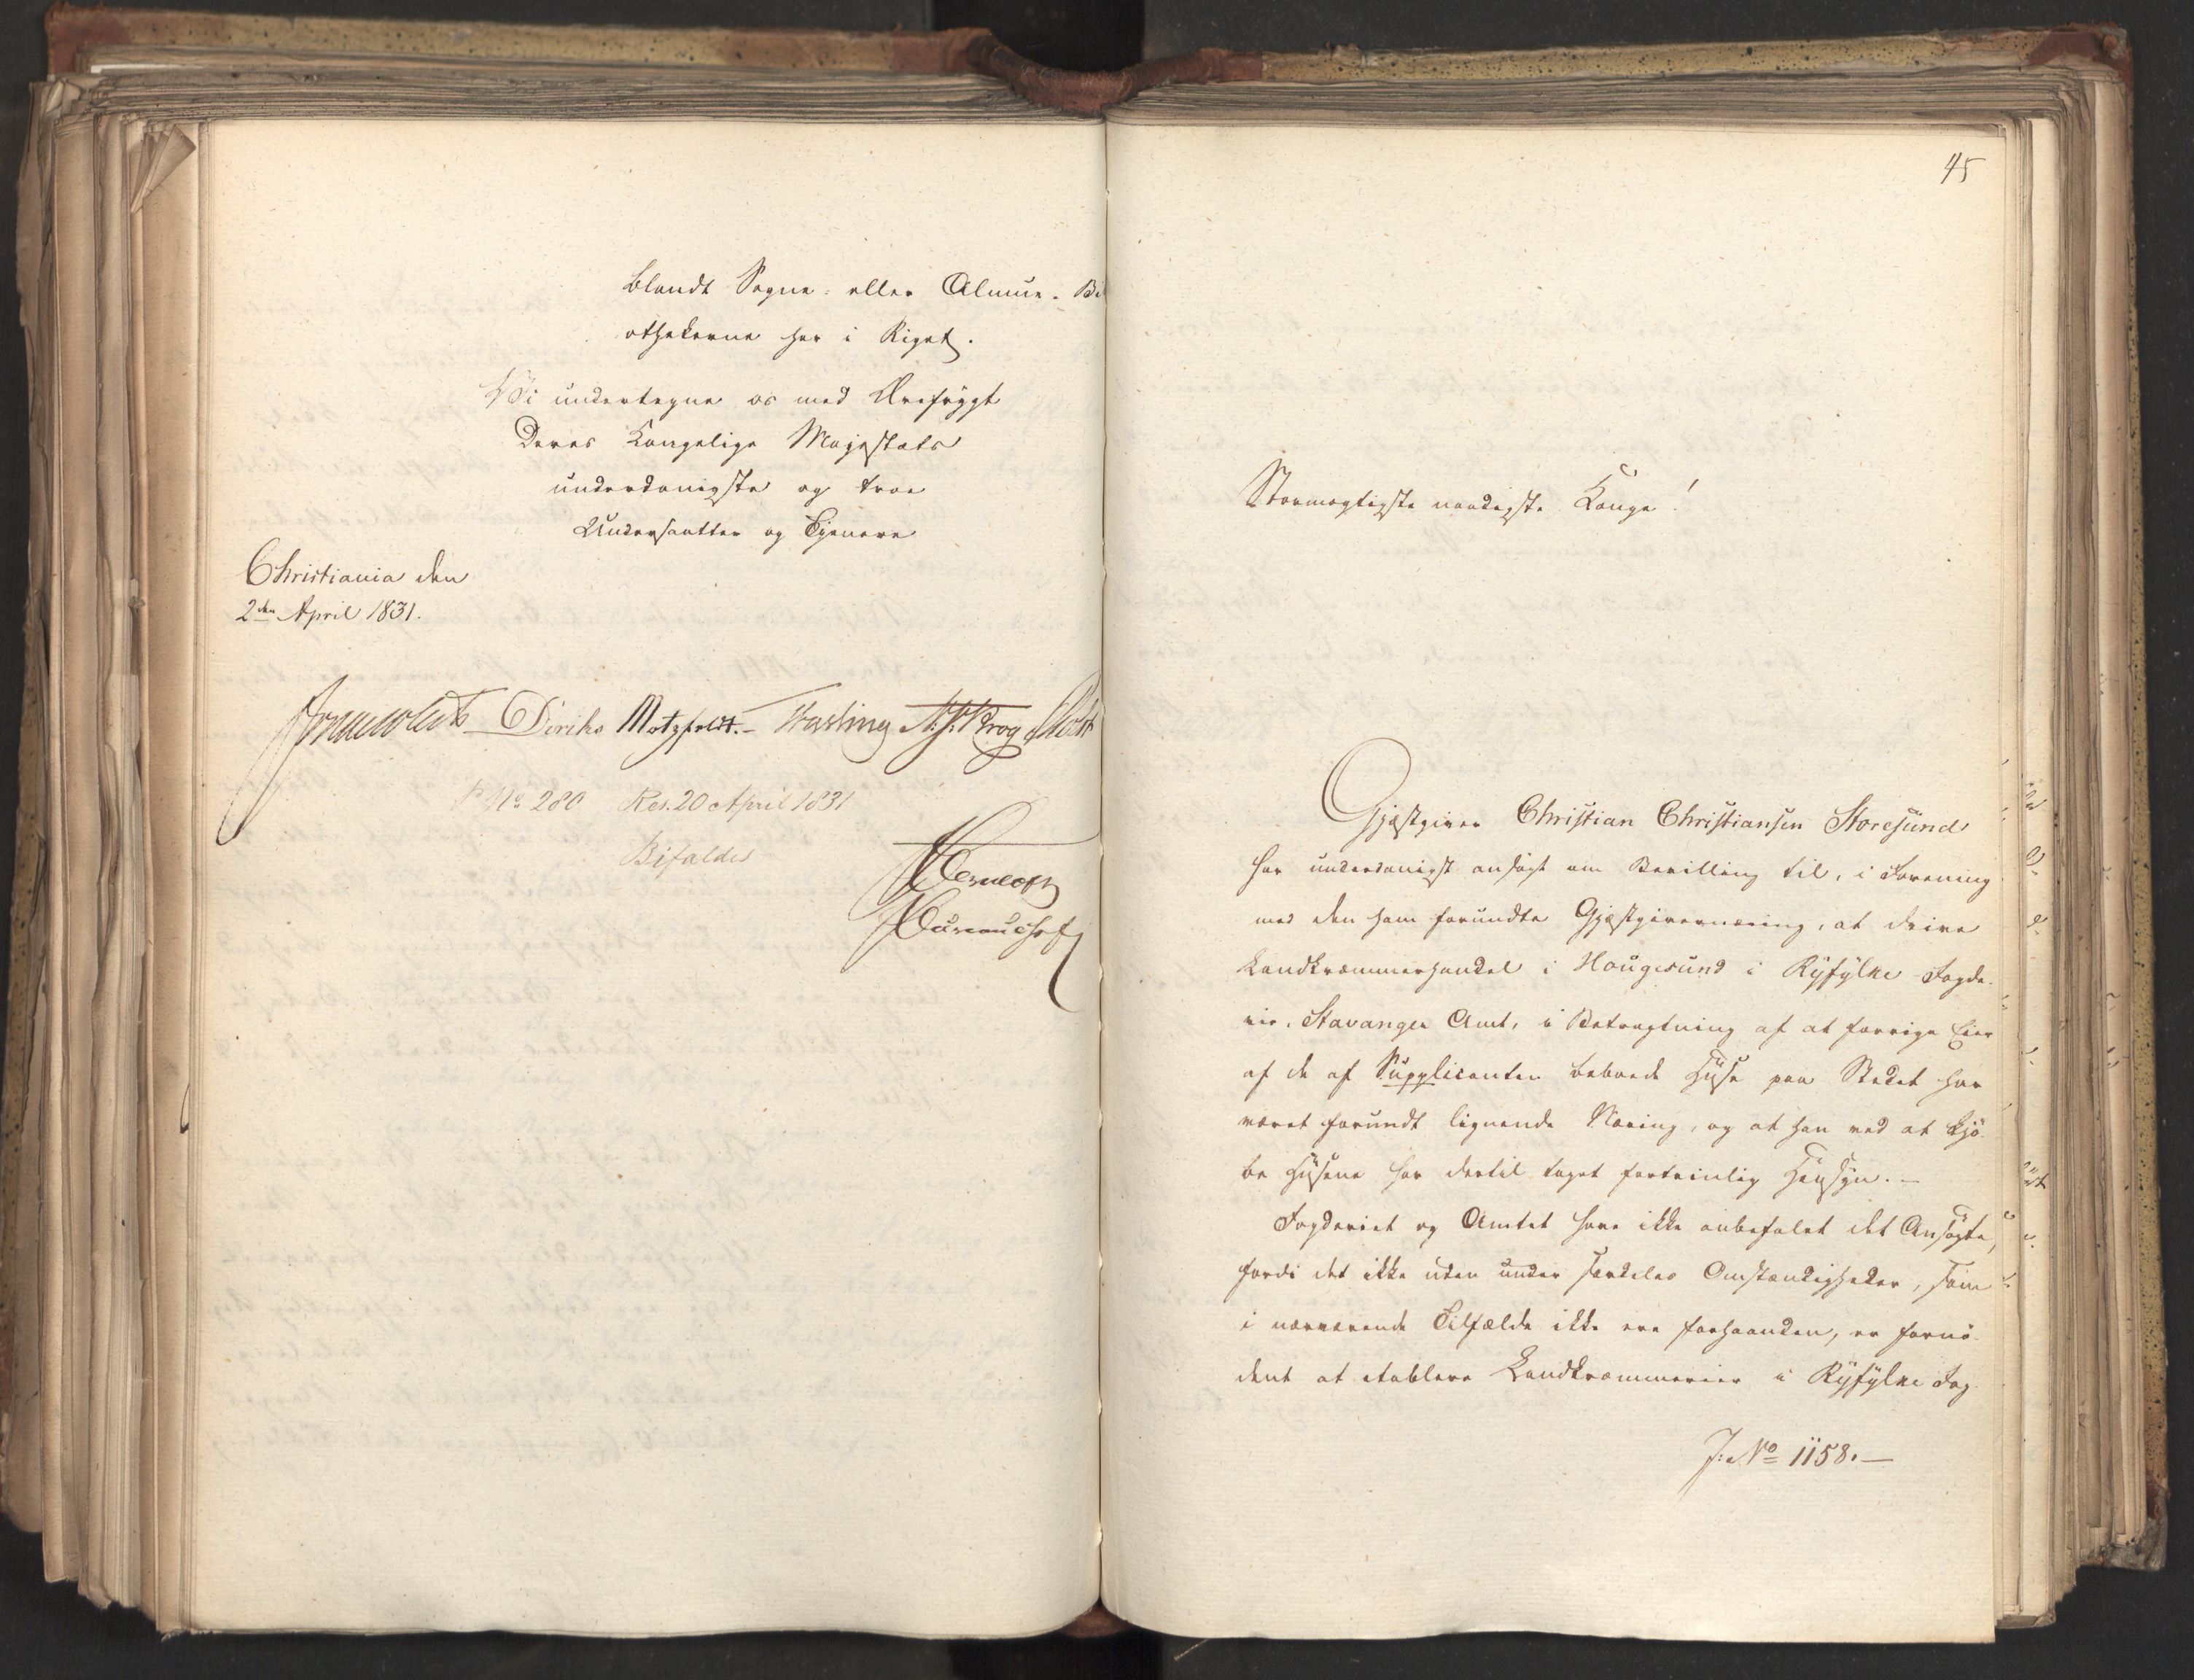 blandt Sogne- eller Almue-Bi
othekerne her i Riget.
Vi undertegne os med Ærefrygt
Deres Kongelige Majestæts
underdanigste og troe
Undersaatter og Tjenere
Christiania den
2den April 1831.
Diriks Motzfeldt.- Fasting Krog Holst
No 280 Res. 20 April 1831
Bifaldes
Bureauchef
45
Stormægtigste naadigste Konge!
Gjæstgiver Christian Christiansen Storesund
har underdanigst ansøgt om Bevilling til, i Forening
med den ham forundte Gjæstgivernæring, at drive
Landkræmmerhandel i Hougesund i Ryfylke Fogde-
rie, Stavanger Amt, i Betragtning af at forrige Eier
af de af Supplicanten beboede Huse paa Stedet har
været forundt lignende Næring, og at han ved at kjö-
be Husene har dertil taget fortrinlig Hensyn.-
Fogderiet og Amtet have ikke anbefalet det Ansøgte,
fordi det ikke uden under særdeles Omstændigheder, som
i nærværende Tilfælde ikke ere forhaanden, er fornö-
dent at etablere Landkræmmerier i Ryfylke Fog-
J: No 1158.-